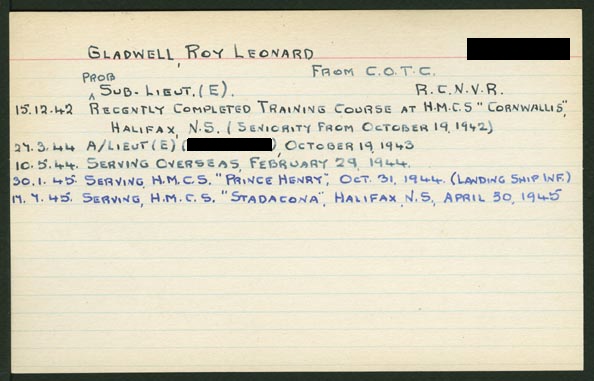 GLADWELL, ROY LEONARD
PROB
^ SUB-LIEUT. (E). FROM C.O.T.C. R.C.N.V.R.
15.12.42 RECENTLY COMPLETED TRAINING COURSE AT H.M.C.S "CORNWALLIS",
HALIFAX, N.S. (SENIORITY FROM OCTOBER 19, 1942)
27.3.44 A/LIEUT (E) ( ), OCTOBER 19, 1943
10.5.44. SERVING OVERSEAS, FEBRUARY 29, 1944.
30.1.45. SERVING, H.M.C.S. "PRINCE HENRY", OCT. 31, 1944. (LANDING SHIP INF.)
17.7.45. SERVING, H.M.C.S. "STADACONA", HALIFAX, N.S, APRIL 30, 1945